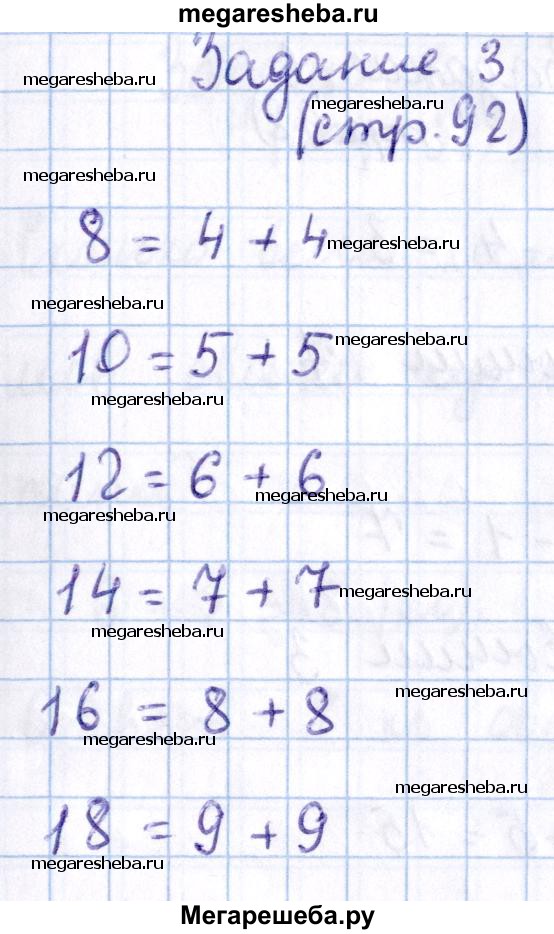 megaresheba.ru
Задание 3
megaresheba.ru
megaresheba.ru
(стр. 92)
megaresheba.ru
8 = 4 + 4
megaresheba.ru
megaresheba.ru
10 = 5 + 5
megaresheba.ru
megaresheba.ru
12 = 6 + 6
megaresheba.ru
megaresheba.ru
14 = 7 + 7
megaresheba.ru
megaresheba.ru
megaresheba.ru
16 = 8 + 8
megaresheba.ru
megaresheba.ru
18 = 9 + 9
megaresheba.ru
Мегарешеба.ру